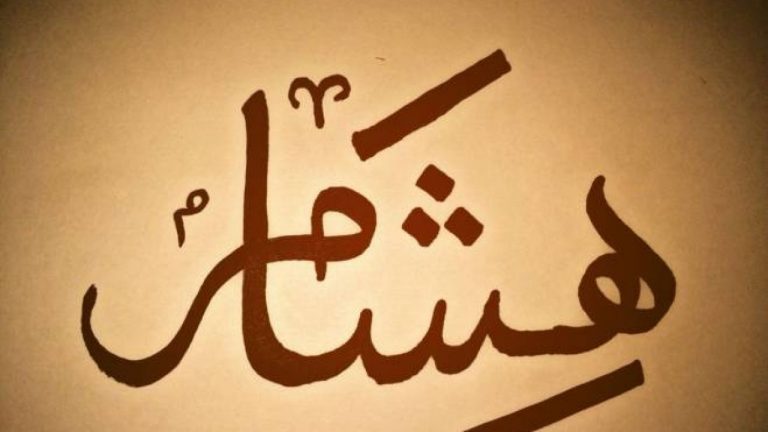 هِشَام